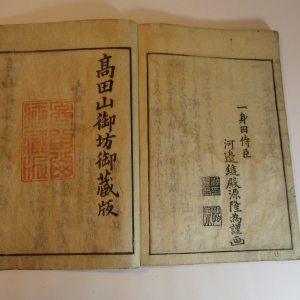 一身田侍臣
河邊縫殿源隆為謹画
高田山御坊御藏版